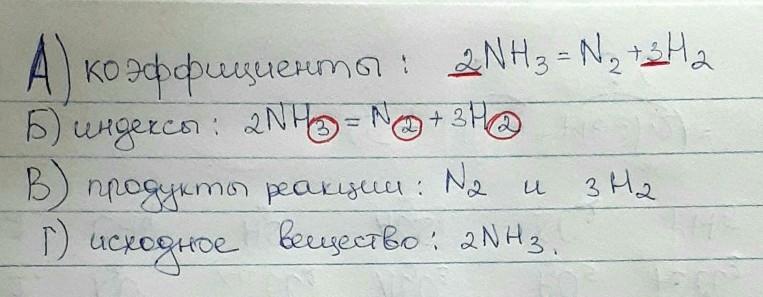 А) коэффициенты: 2NH₃ = N₂ + 3H₂
Б) индексы: 2NH₃ = N₂ + 3H₂
В) продукты реакции: N₂ и 3H₂
Г) исходное вещество: 2NH₃.